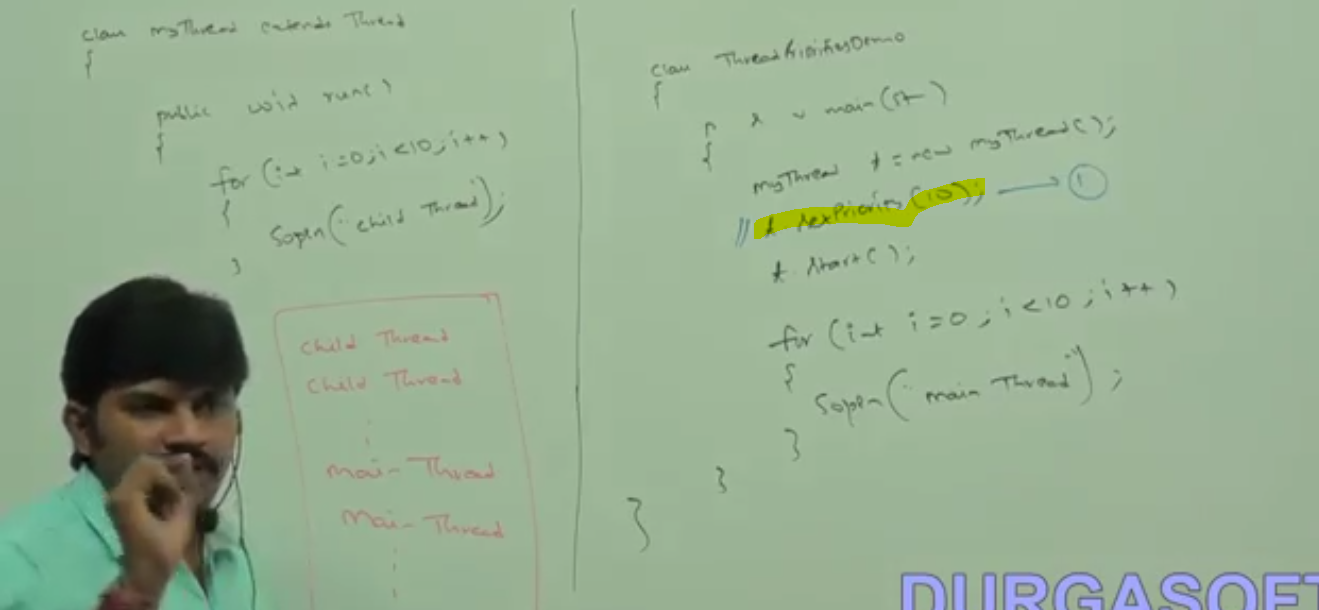 class myThread extends Thread
{
public void run()
{
for (int i=0; i<10; i++)
{
Sopln("child Thread");
}
child Thread
child Thread
main Thread
Main Thread
class ThreadPrioritiesDemo
{
p s v main(St—)
{
myThread t = new myThread();
// t.setPriority(10); → 1
t.start();
for (int i=0; i<10; i++)
{
Sopln("main Thread");
}
}
}
DURGASOFT